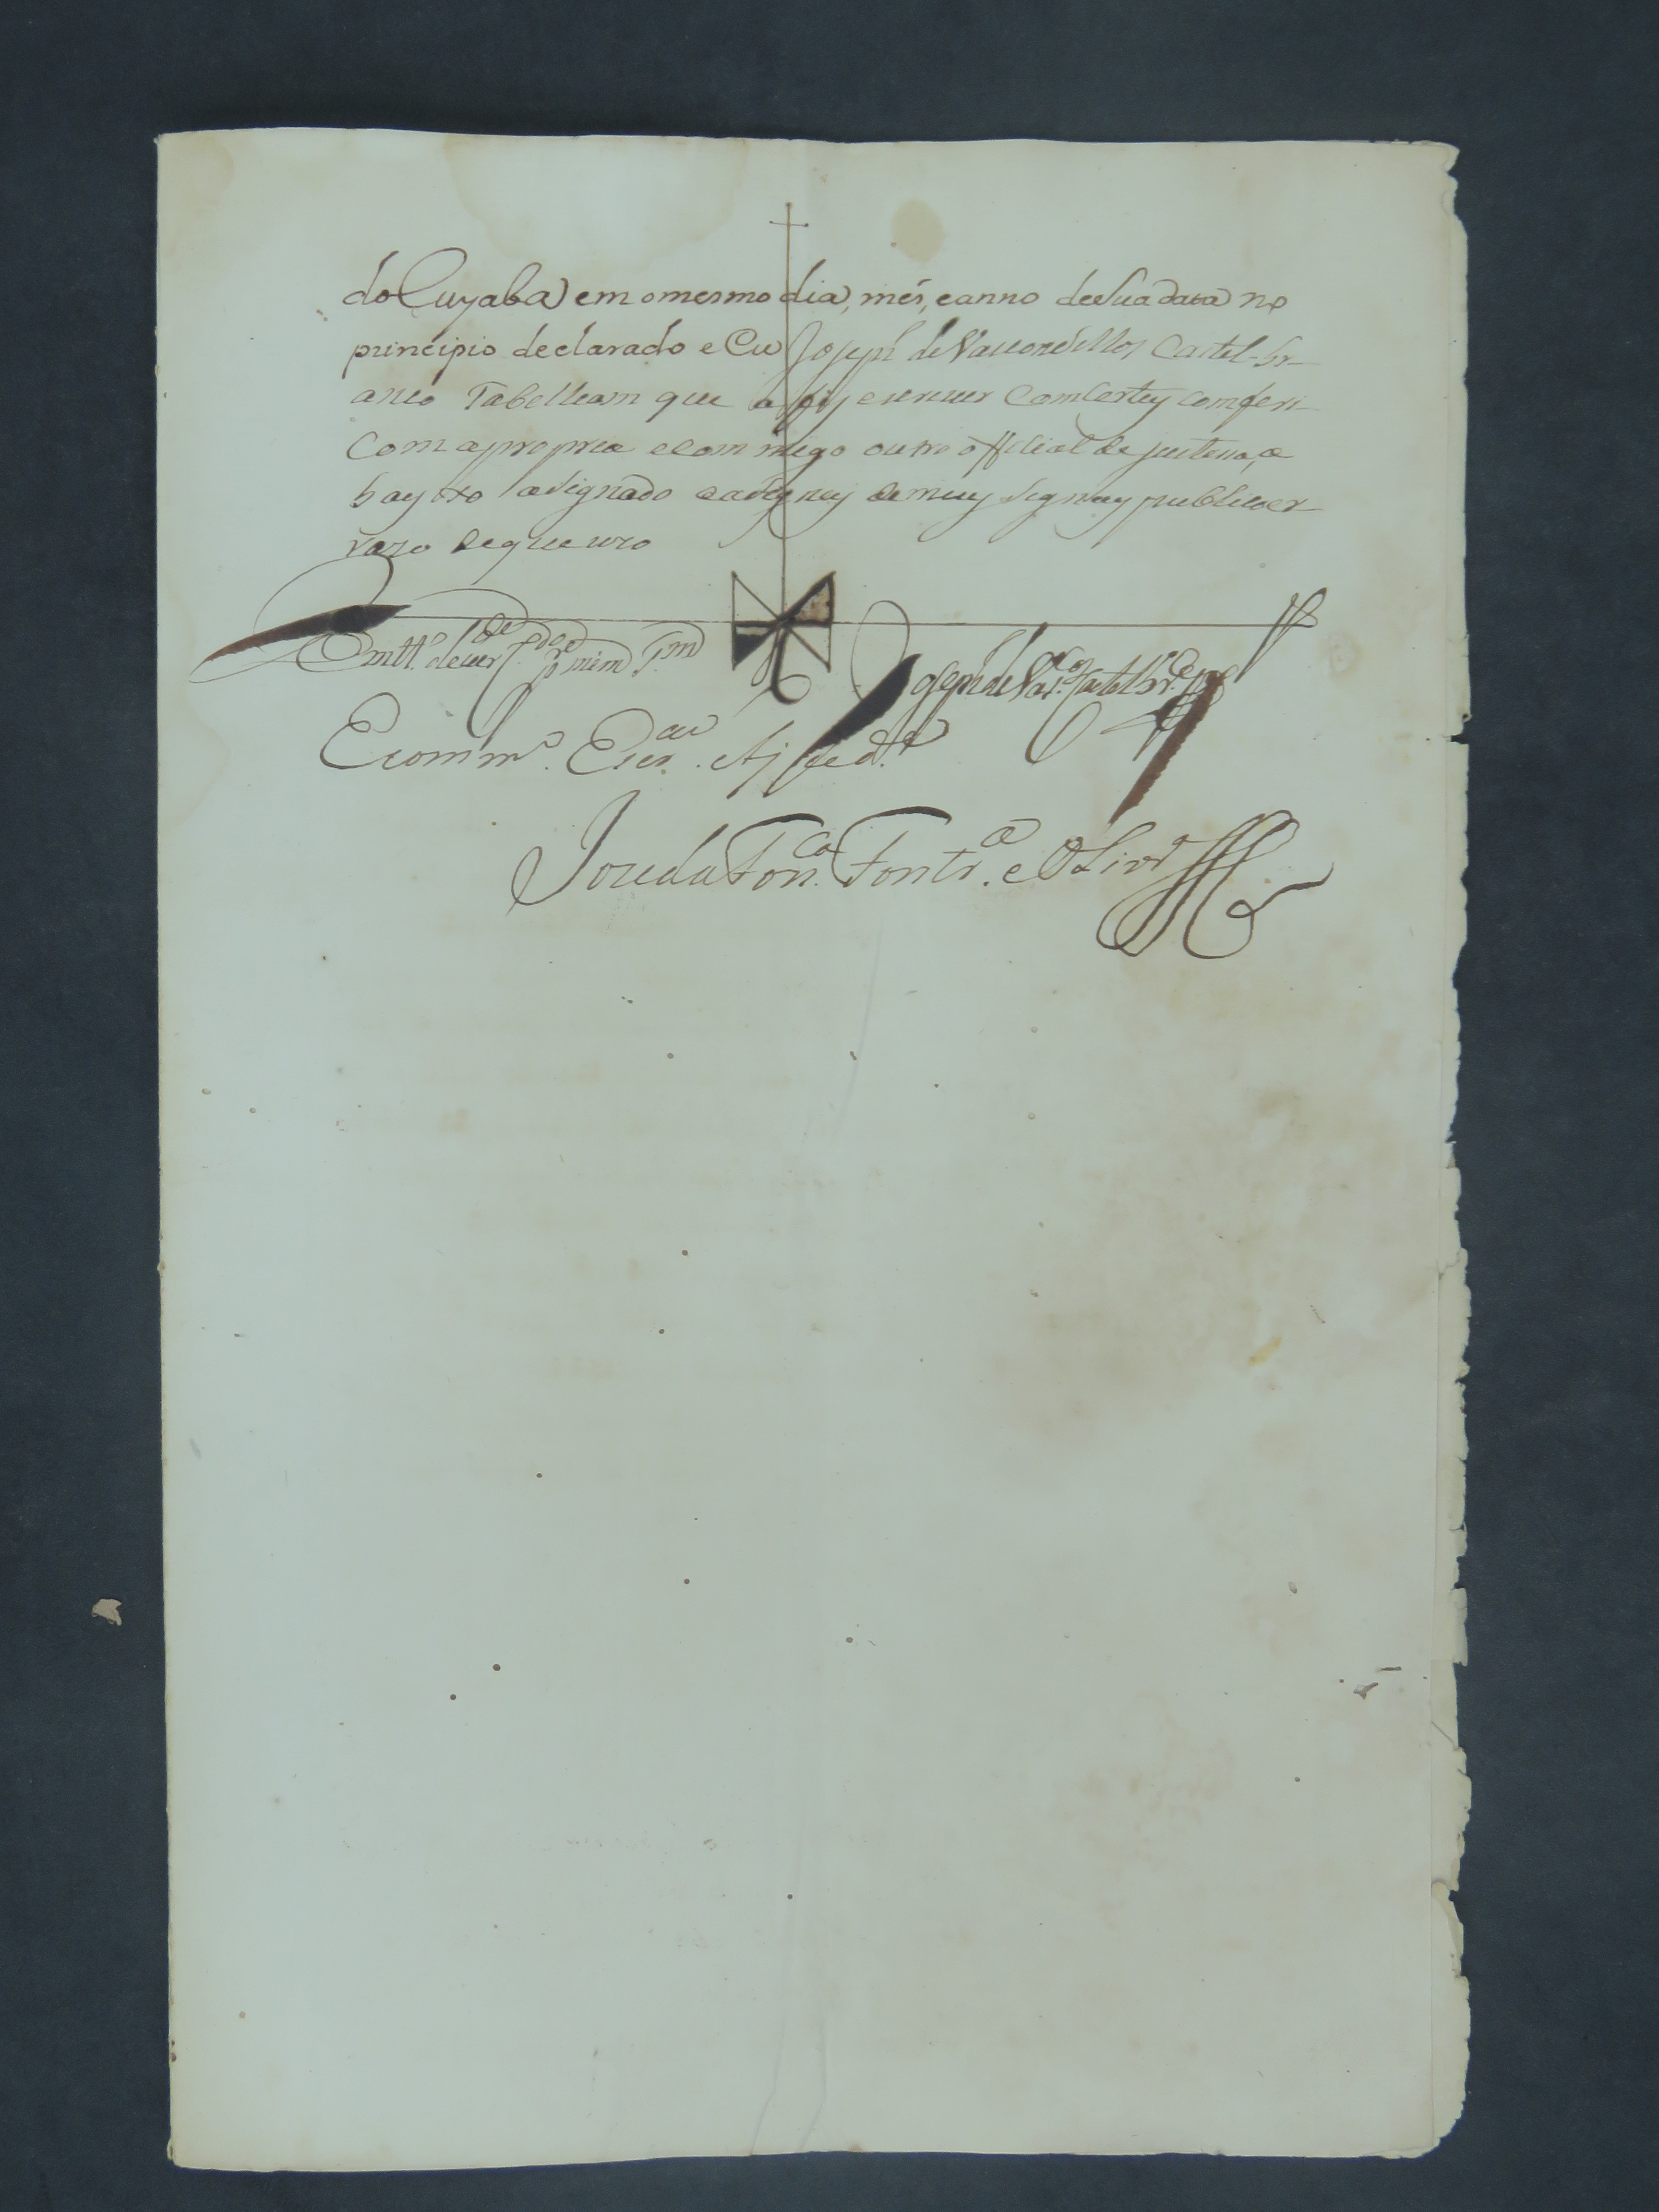 do Cuyaba em o mesmo dia, mes, e anno de sua data no
principio declarado e Eu Joseph de Vasconcellos Castel-br-
anco Tabelleam que a fiz escrever Comcertey comfery
Com a propria e com migo outro official de justissa, a
bayxo asignado e asigney de meu signay publico er
razo de que uzo
Em tt.º de ver.de
Joseph de Vas.cos Castel br.co
E comm.º Escr.am
Joze da Fon.ca Font.a e Oliv.ra